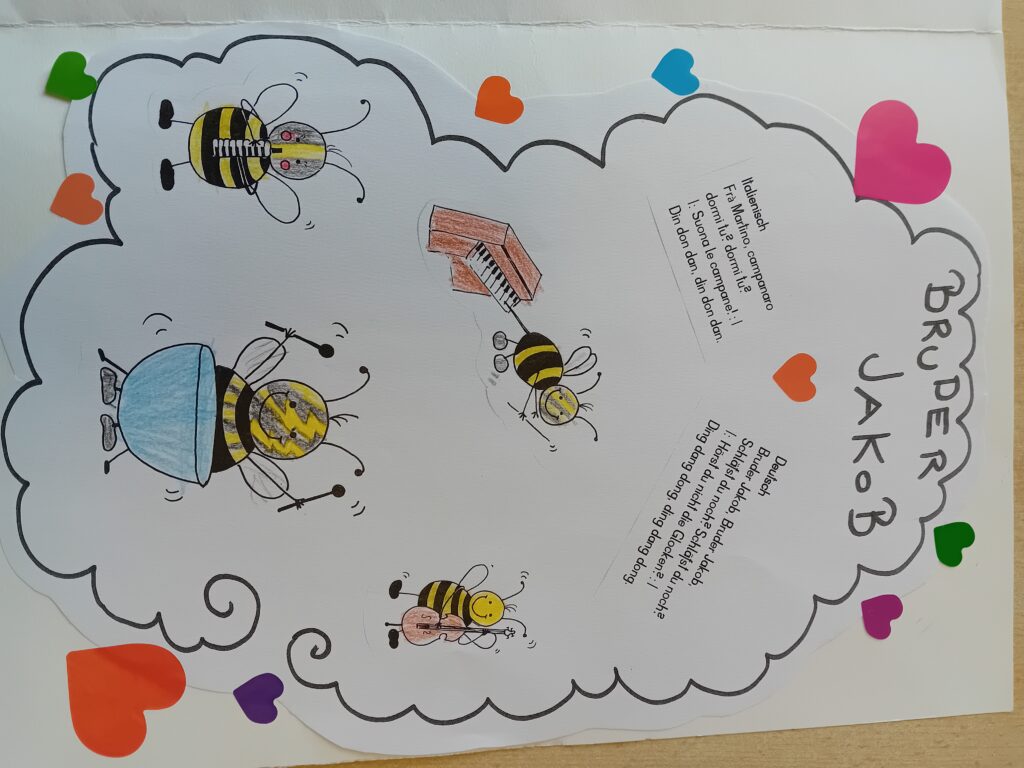 BRUDER
JAKOB
Italienisch
Frà Martino, campanaro
dormi tu? dormi tu?
|: Suona le campane! :|
Din don dan, din don dan.
Deutsch
Bruder Jakob, Bruder Jakob,
Schläfst du noch? Schläfst du noch?
|: Hörst du nicht die Glocken? :|
Ding dang dong, ding dang dong.